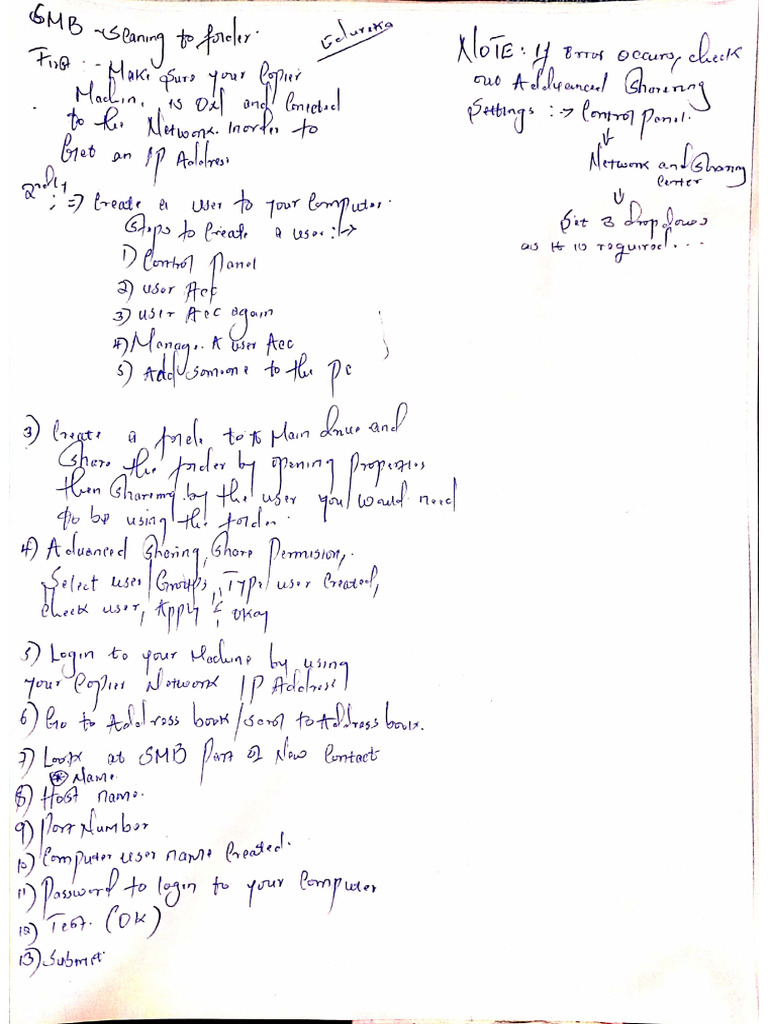 SMB - Scaning to folder.
Edureka
First :- Make sure your Copier
Machin. is On and Conected
to the Network. Inorder to
Get an IP Address
2ndly
:=> Create a user to your Computer.
Steps to Create a user :->
1) Control Panel
2) user Acc
3) user Acc again
4) Manage. A user Acc
5) Add someone to the pc
3) Create a folde to Main drive and
Share the folder by opening Properties
then Sharing by the user you would need
to be using the folder.
4) Advanced Sharing, Share Permision,
Select user/Groups, Type user Created,
check user, Apply & okay
5) Login to your Machine by using
your Copier Network IP Address
6) Go to Address book/scrol to Address book.
7) Look at SMB Part of New Contact
Name
8) Host name.
9) Port Number
10) Computer user name Created.
11) Password to login to your Computer
12) Test. (OK)
13) Submit
NOTE: If Error Occurs, check
Addvanced Sharering
Settings :-> Control panel.
↓
Network and Sharing
Center
↓
Set 3 drop downs
as it is required...